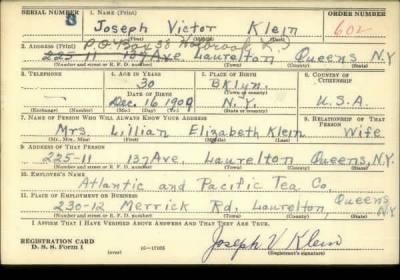 SERIAL NUMBER 1. NAME (Print) ORDER NUMBER
8 Joseph Victor Klein 602
(First) (Middle) (Last)
2. ADDRESS (Print) P.O. Box 38 Holbrook L.I.
225-11 137 Ave. Laurelton Queens N.Y.
(Number and street or R. F. D. number) (Town) (County) (State)
3. TELEPHONE 4. AGE IN YEARS 5. PLACE OF BIRTH 6. COUNTRY OF CITIZENSHIP
30 Bklyn.
DATE OF BIRTH (Town or county)
Dec. 16 1909 N.Y. U.S.A.
(Exchange) (Number) (Mo.) (Day) (Yr.) (State or country)
7. NAME OF PERSON WHO WILL ALWAYS KNOW YOUR ADDRESS 8. RELATIONSHIP OF THAT PERSON
Mrs. Lillian Elizabeth Klein Wife
(Mr., Mrs., Miss) (First) (Middle) (Last)
9. ADDRESS OF THAT PERSON
225-11 137 Ave, Laurelton Queens, N.Y.
(Number and street or R. F. D. number) (Town) (County) (State)
10. EMPLOYER'S NAME
Atlantic and Pacific Tea Co.
11. PLACE OF EMPLOYMENT OR BUSINESS
230-12 Merrick Rd, Laurelton, Queens N.Y.
(Number and street or R. F. D. number) (Town) (County) (State)
I AFFIRM THAT I HAVE VERIFIED ABOVE ANSWERS AND THAT THEY ARE TRUE.
REGISTRATION CARD
D. S. S. Form 1 (over) Joseph V Klein
(Registrant's signature)